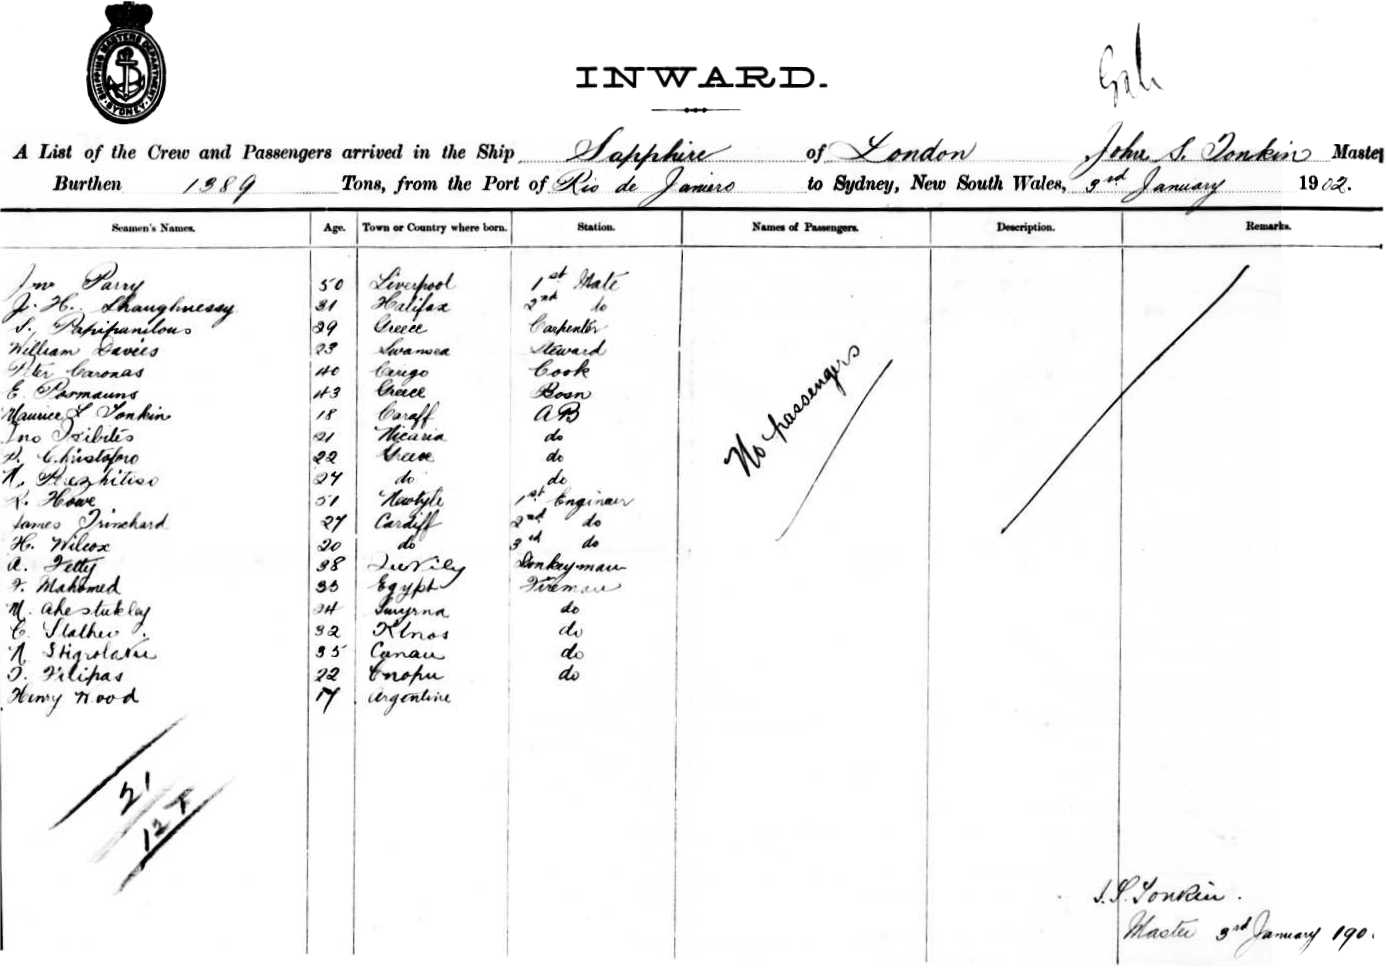 SHIPPING MASTERS DEPARTMENT
SYDNEY
INWARD.
A List of the Crew and Passengers arrived in the Ship Sapphire of London John S. Tonkin Master
Burthen 1389 Tons, from the Port of Rio de Janiero to Sydney, New South Wales, 3rd January 1902.
Seamen's Names. Age. Town or Country where born. Station. Names of Passengers. Description. Remarks.
Jno Parry 50 Liverpool 1st Mate
J. H. Shaughnessy 31 Halifax 2nd do
S. 29 Greece Carpenter
William Davies 23 Swansea Steward
Peter Caronas 40 Cerigo Cook
E. 43 Greece Bosn
Maurice S Tonkin 18 AB
Jno 21 Nicaria do
P. Christoforo 22 Greece do
N. 27 do do
R. Howe 51 1st Engineer
James Trinchard 27 Cardiff 2nd do
H. Wilcox 20 do 3rd do
A. Fetty 38 Donkeyman
F. Mahomed 33 Egypt Fireman
M. 24 Smyrna do
C. 32 do
N 35 do
F. Filipas 22 do
Henry Wood 17 Argentine
No passengers
21
J. S. Tonkin.
Master 3rd January 190.